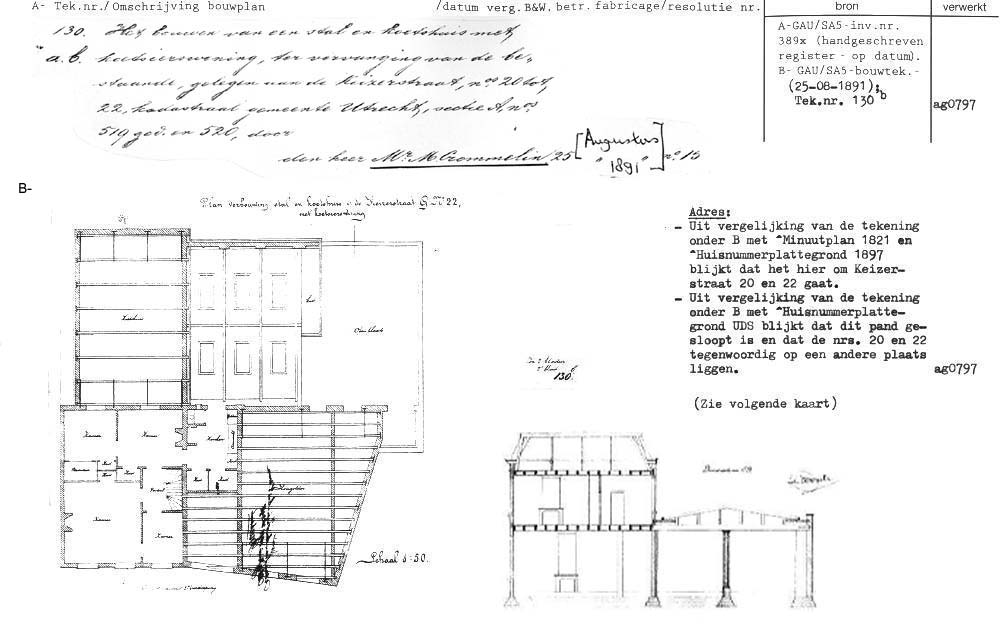 A- Tek.nr./Omschrijving bouwplan /datum verg.B&W. betr. fabricage/resolutie nr. bron verwerkt
130. Het bouwen van een stal en koetshuis met
a.b. koetsierswoning, ter vervanging van de be-
staande, gelegen aan de Keizerstraat, nos 20 tot
22, kadastraal gemeente Utrecht, sectie A, nos
519 ged. en 520, door
den heer Mr. M Crommelin 25 [Augustus "1891"] no 15
A-GAU/SA5-inv.nr.
389x (handgeschreven
register - op datum).
B- GAU/SA5-bouwtek.-
(25-08-1891);
Tek.nr. 130 b
ag0797
B-
Plan verbouwing stal en koetshuis i/d Keizerstraat G No 22,
met koetsierswoning
Open plaats
Kamer
Kamer
Keuken
Kamer
Kamer
Schaal 1:50.
130.
Doorsnede
Adres:
- Uit vergelijking van de tekening
onder B met ^Minuutplan 1821 en
^Huisnummerplattegrond 1897
blijkt dat het hier om Keizer-
straat 20 en 22 gaat.
- Uit vergelijking van de tekening
onder B met ^Huisnummerplatte-
grond UDS blijkt dat dit pand ge-
sloopt is en dat de nrs. 20 en 22
tegenwoordig op een andere plaats
liggen.
ag0797
(Zie volgende kaart)